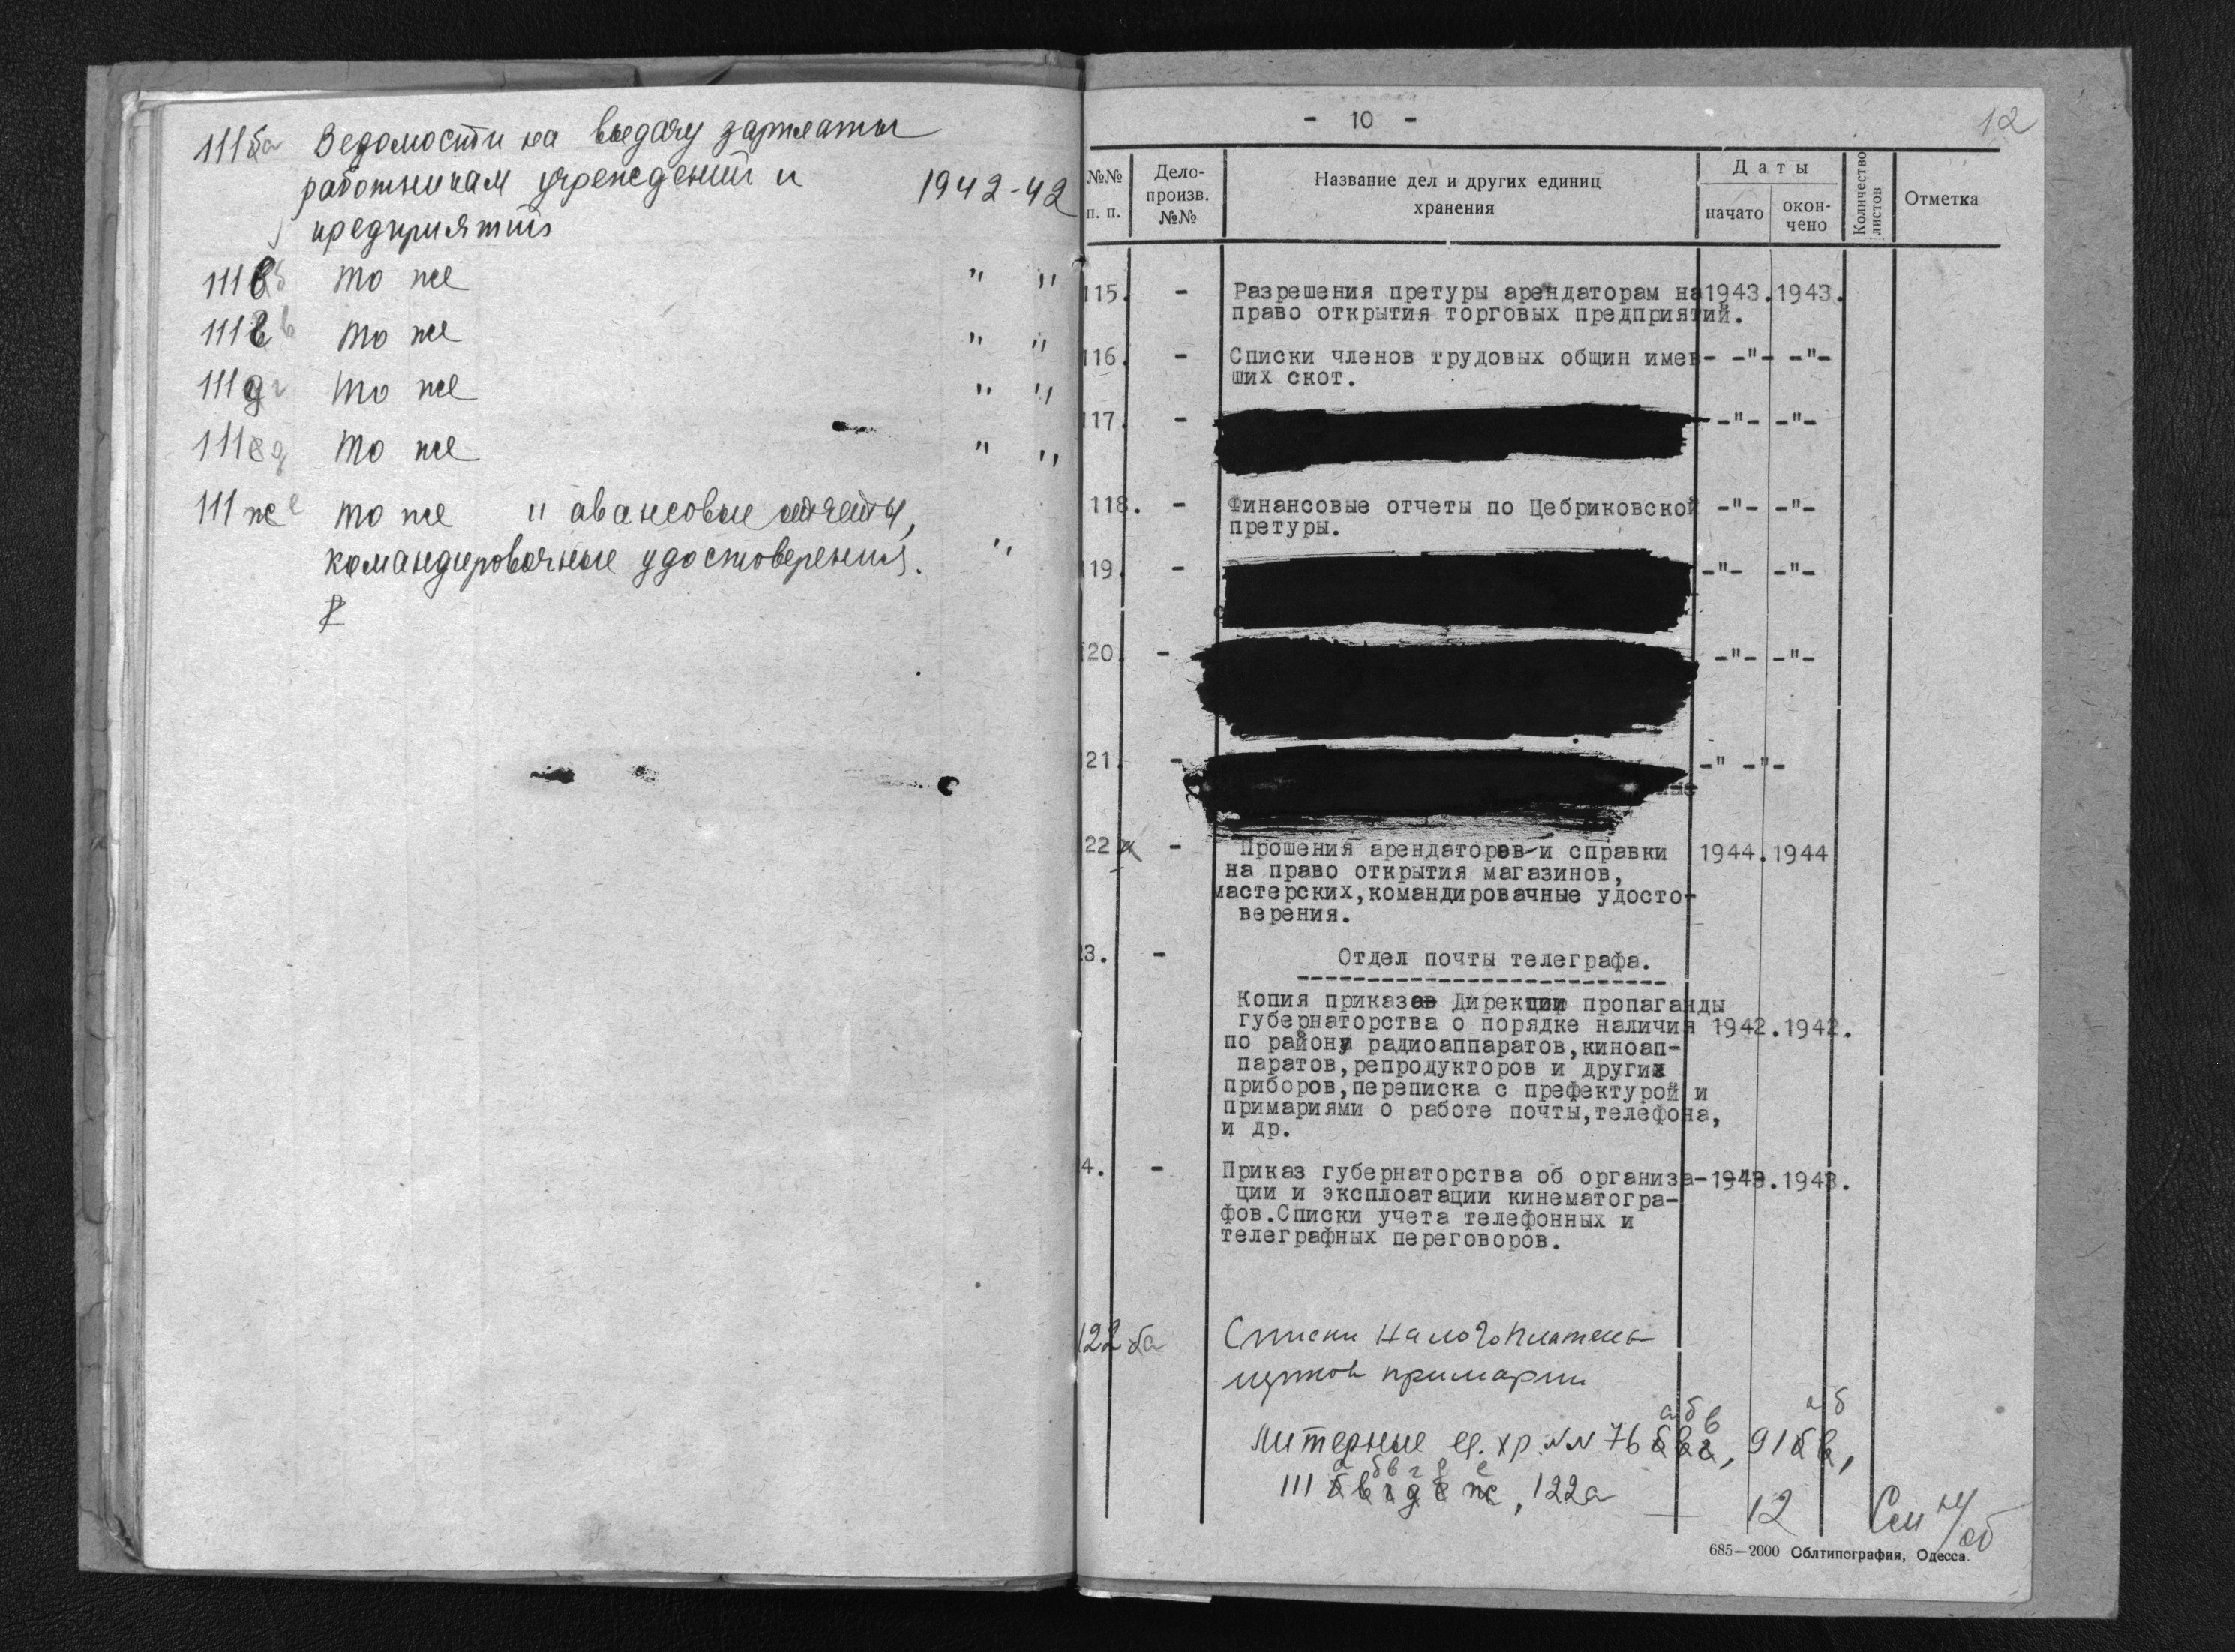 111ба Ведомости на выдачу зарплаты
работникам учреждений и 1942-42
предприятий
111 в б то же " "
111 в то же " "
111 д г то же " "
111 е д то же " "
111 ж е то же и авансовые отчеты,
командировочные удостоверения. "
- 10 -
12
№№ п. п.
Дело-произв. №№
Название дел и других единиц
хранения
Даты
начато
окон-
чено
Количество
листов
Отметка
115. - Разрешения претуры арендаторам на 1943. 1943.
право открытия торговых предприятий.
116. - Списки членов трудовых общин имев- -"- -"-
ших скот.
117. - -"- -"-
118. - Финансовые отчеты по Цебриковской -"- -"-
претуры.
19. - -"- -"-
20. - -"- -"-
21. - -" -"-
ные
22 а - Прошения арендаторов и справки 1944. 1944
на право открытия магазинов,
мастерских,командировачные удосто-
верения.
3. - Отдел почты телеграфа.
Копия приказов Дирекции пропаганды
губернаторства о порядке наличия 1942. 1942.
по району радиоаппаратов,киноап-
паратов,репродукторов и других
приборов,переписка с префектурой и
примариями о работе почты,телефона,
и др.
4. - Приказ губернаторства об организа- 1943. 1943.
ции и эксплоатации кинематогра-
фов.Списки учета телефонных и
телеграфных переговоров.
122 ба Списки налогоплатель-
щиков примарии
а б в а б
Литерные ед. хр. №№ 76 бвг, 91 бв,
а б в г д е
111 бвгдеж, 122а 12
См
об
685—2000 Облтипография, Одесса.